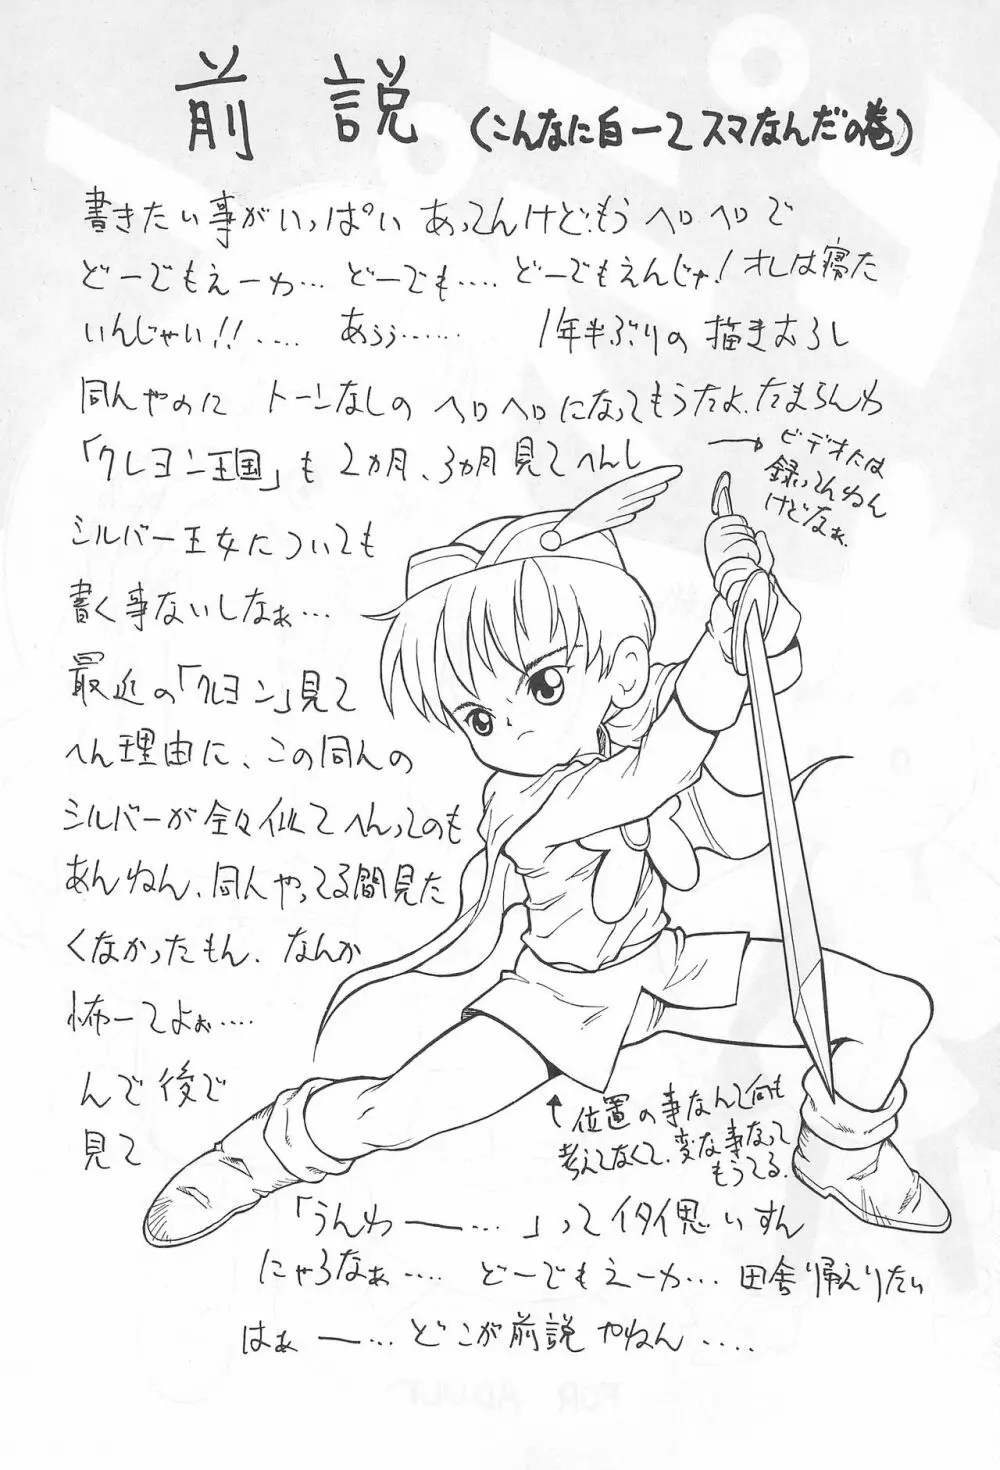 前説 (こんなに白一てスマなんだの巻)
書きたい事がいっぱいあってんけど、もうヘロヘロで
どーでもえーわ… どーでも…. どーでもえんじゃ!オレは寝た
いんじゃい!!.... あぅぅ…… 1年半ぶりの描きおろし
同人やのに トーンなしの ヘロヘロになってもうたよ、たまらんわ
「クレヨン王国」も2カ月、3カ月見てへんし
→ビデオには
録ってんねん
けどなぁ.
シルバー王女についても
書く事ないしなぁ…
最近の「クレヨン」見て
へん理由に、この同人の
シルバーが全々似てへんってのも
あんねん、同人やってる間見た
くなかったもん. なんか
怖ーてよぉ….
んで後で
見て
↑位置の事なんて何も
考えてなくて、変な事なって
もうてる.
「うんわー…」ってイタイ思いすん
にゃろなぁ…. どーでもえーわ… 田舎帰えりたい
はぁー… どこが前説やねん ....
FOR ADULT